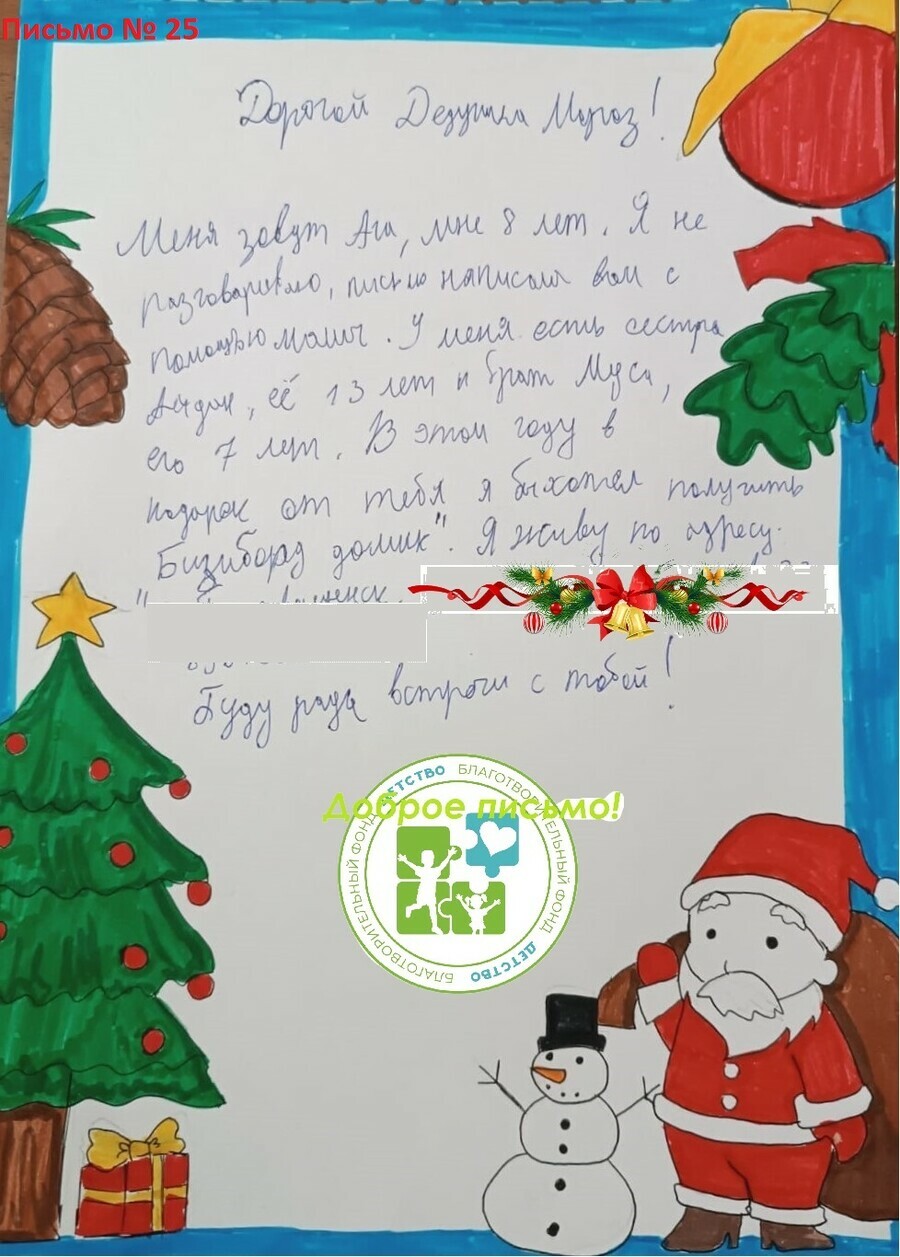 Письмо № 25
Дорогой Дедушка Мороз!
Меня зовут Ага, мне 8 лет. Я не
разговариваю, письмо написала вам с
помощью мамы. У меня есть сестра
её 13 лет и брат Муса,
его 7 лет. В этом году в
подарок от тебя я бы хотел получить
"Бизиборд домик". Я живу по адресу:
Буду рада встречи с тобой!
Доброе письмо!
БЛАГОТВОРИТЕЛЬНЫЙ ФОНД ДЕТСТВО
БЛАГОТВОРИТЕЛЬНЫЙ ФОНД ДЕТСТВО